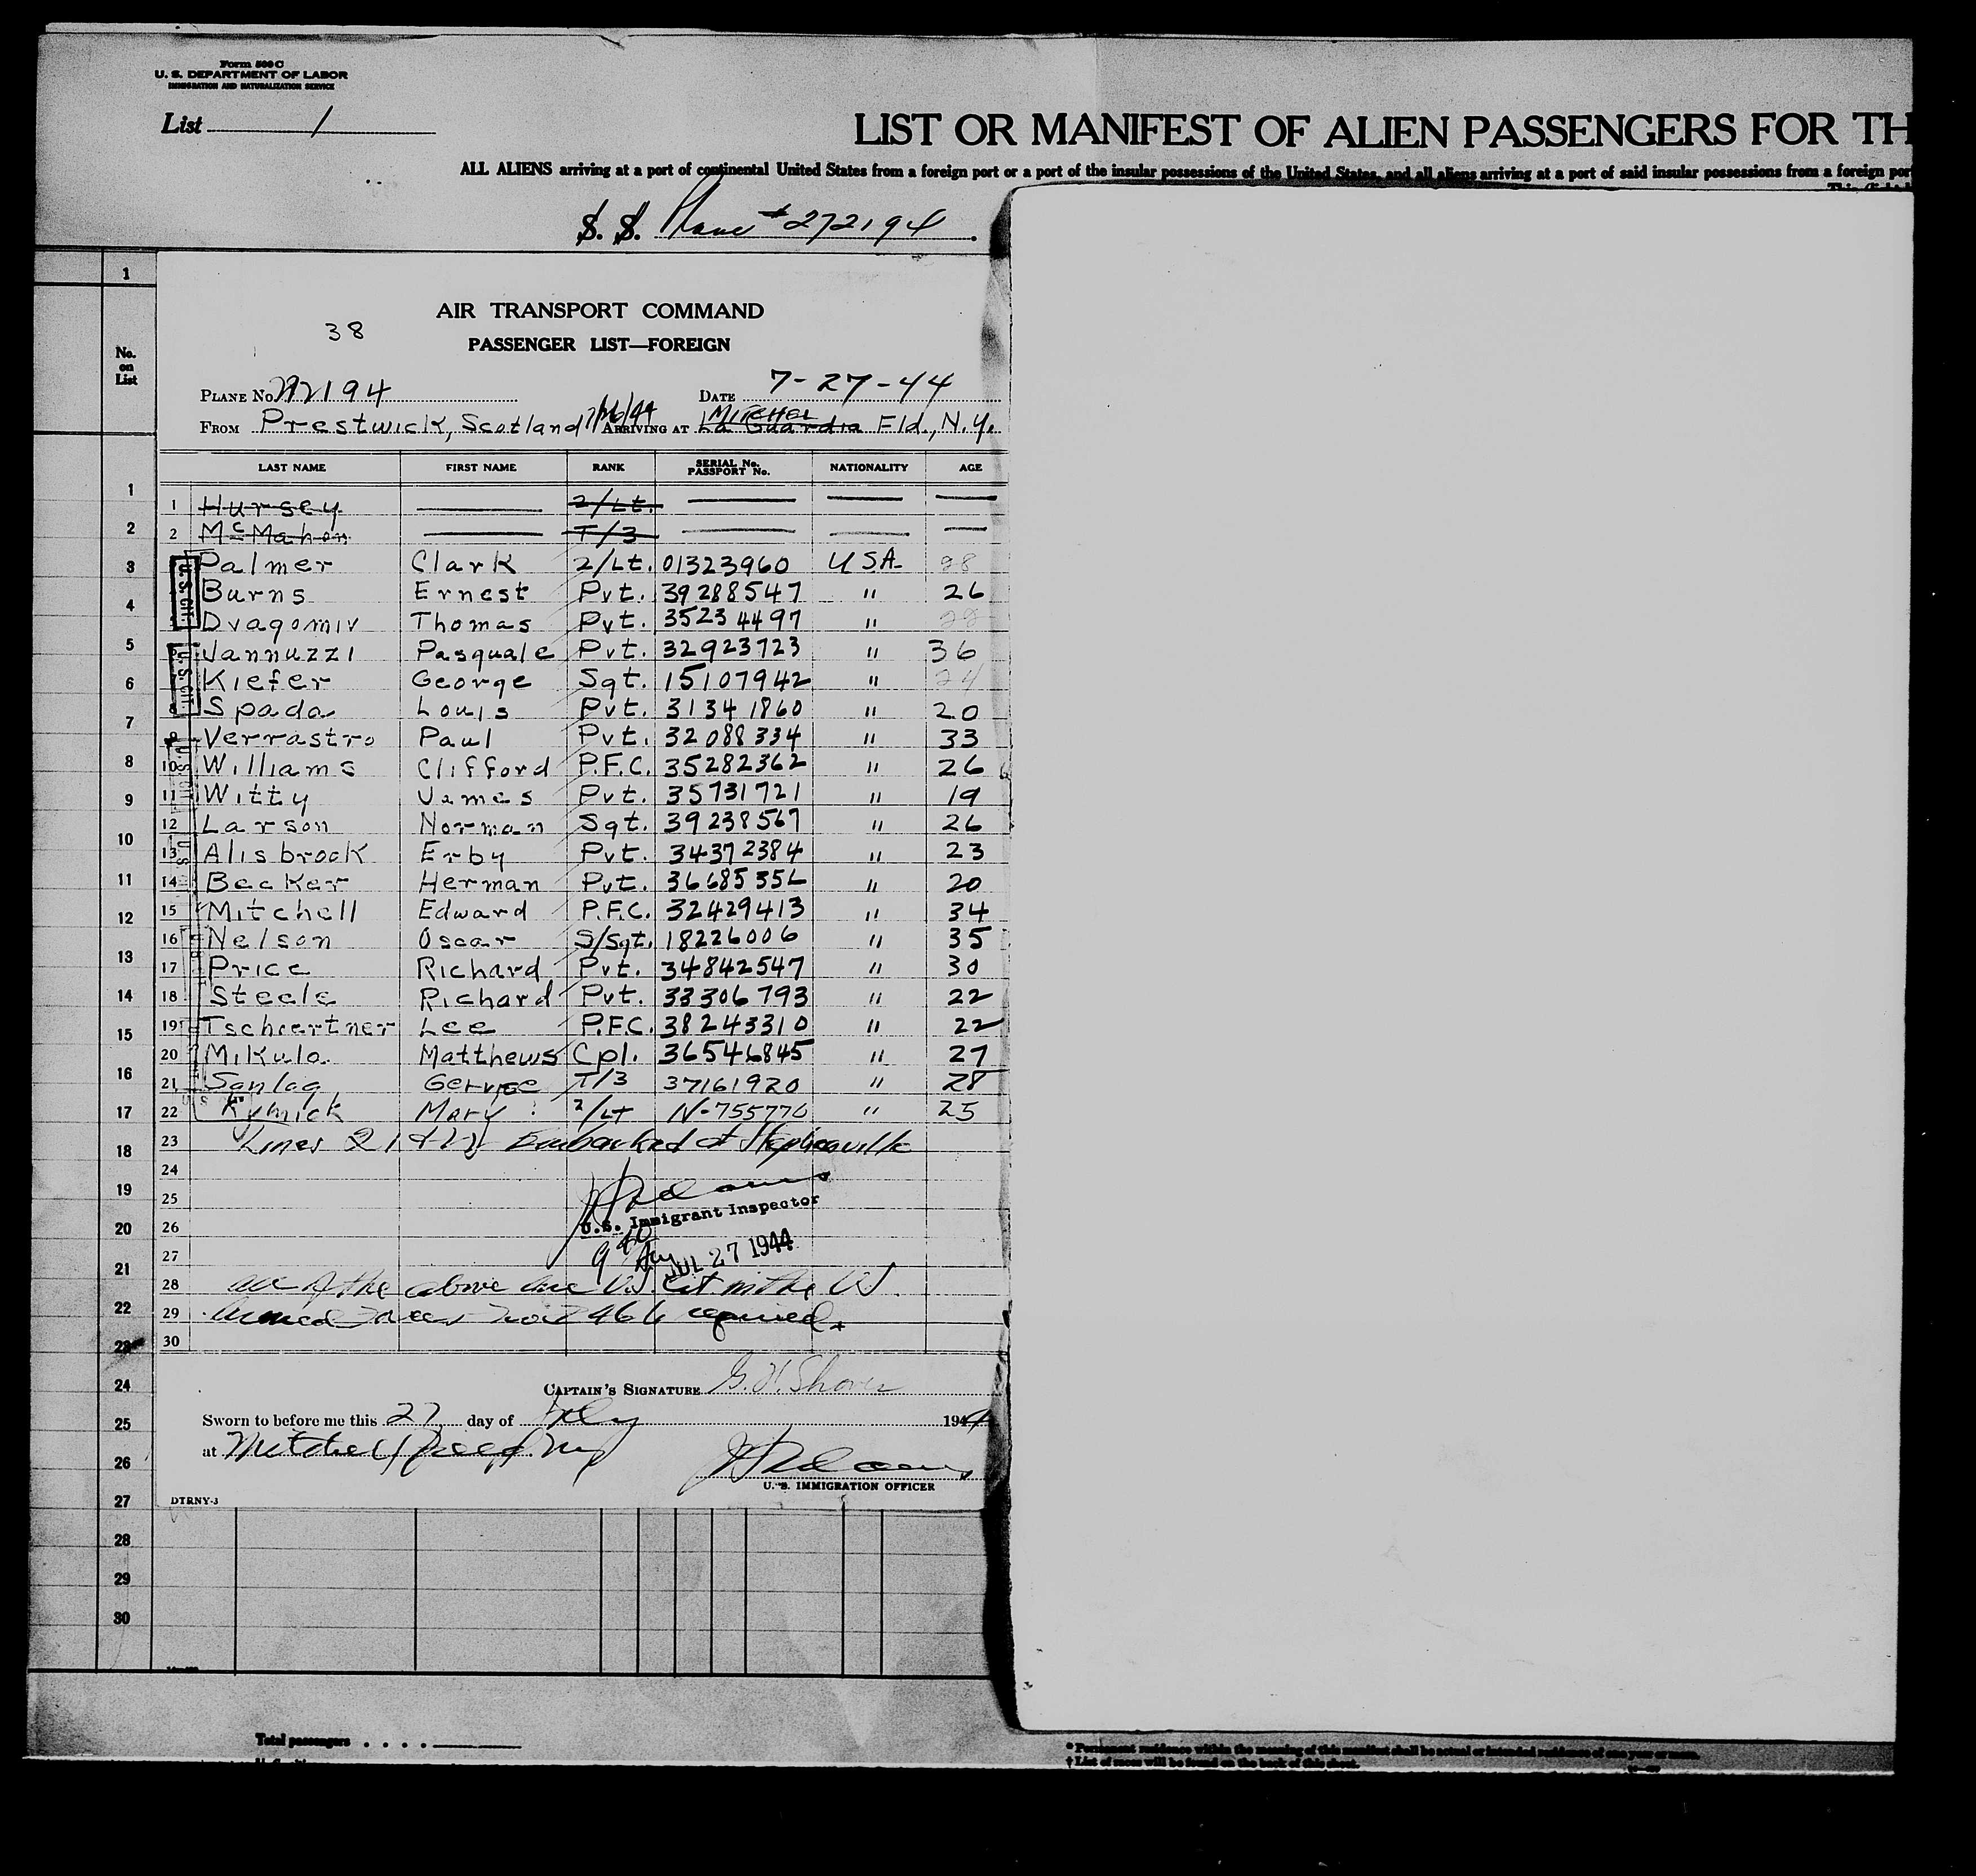 Form 500 C
U. S. DEPARTMENT OF LABOR
IMMIGRATION AND NATURALIZATION SERVICE
List 1
LIST OR MANIFEST OF ALIEN PASSENGERS FOR TH
ALL ALIENS arriving at a port of continental United States from a foreign port or a port of the insular possessions of the United States, and all aliens arriving at a port of said insular possessions from a foreign por
S. S. Plane # 272194
1
AIR TRANSPORT COMMAND
38
PASSENGER LIST—FOREIGN
No. on List
PLANE No. 272194 DATE 7-27-44
FROM Prestwick, Scotland 7/26/44 ARRIVING AT La Guardia Mitchel Fld., N.Y.
LAST NAME FIRST NAME RANK SERIAL No. PASSPORT No. NATIONALITY AGE
1 Hursey 2/Lt.
2 McMahon T/3
Palmer Clark 2/Lt. 01323960 USA 28
Burns Ernest Pvt. 39288547 " 26
Dragomir Thomas Pvt. 35234497 "
Jannuzzi Pasquale Pvt. 32923723 " 36
Kiefer George Sgt. 15107942 " 24
8 Spada Louis Pvt. 31341860 " 20
9 Verrastro Paul Pvt. 32088334 " 33
10 Williams Clifford P.F.C. 35282362 " 26
11 Witty James Pvt. 35731721 " 19
12 Larson Norman Sgt. 39238567 " 26
13 Alisbrook Erby Pvt. 34372384 " 23
14 Becker Herman Pvt. 36685356 " 20
15 Mitchell Edward P.F.C. 32429413 " 34
16 Nelson Oscar S/Sgt. 18226006 " 35
17 Price Richard Pvt. 34842547 " 30
18 Steele Richard Pvt. 33306793 " 22
19 Tschoertner Lee P.F.C. 38243310 " 22
20 Mikula Matthews Cpl. 36546845 " 27
21 Sanlag George T/3 37161920 " 28
22 Rymick Mary 2/Lt N-755776 " 25
23 Lines 21 & 22 Embarked at Stephenville
24
25
U.S. Immigrant Inspector
26
27 JUL 27 1944
28 all of the above are U.S. Cit in the US
29 Armed Forces no 2466 required.
30
CAPTAIN'S SIGNATURE G. H. Shover
Sworn to before me this 27 day of July 1944
at Mitchel Field NY
U. S. IMMIGRATION OFFICER
DTRNY-3
1
2
3
4
5
6
7
8
9
10
11
12
13
14
15
16
17
18
19
20
21
22
23
24
25
26
27
28
29
30
Total passengers
* Permanent residence within the meaning of this manifest shall be actual or intended residence of one year or more.
† List of races will be found on the back of this sheet.